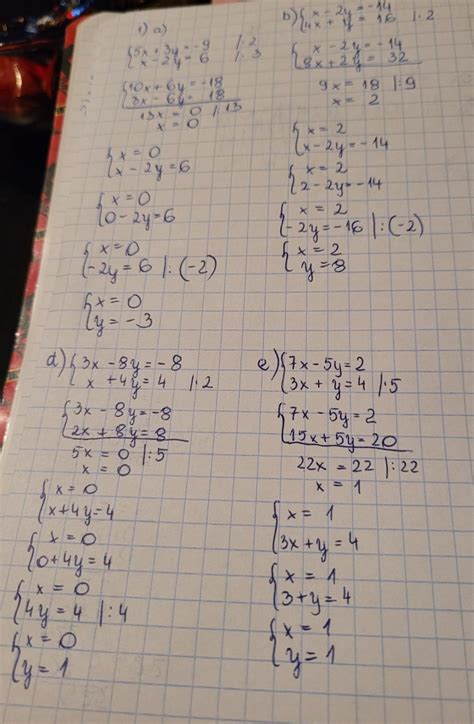 1) a)
{5x + 3y = -9 |·2
{x - 2y = 6 |·3
{10x + 6y = -18
{3x - 6y = 18
13x = 0 |:13
x = 0
{x = 0
{x - 2y = 6
{x = 0
{0 - 2y = 6
{x = 0
{-2y = 6 |:(-2)
{x = 0
{y = -3
b) {x - 2y = -14
{4x + y = 16 |·2
{x - 2y = -14
{8x + 2y = 32
9x = 18 |:9
x = 2
{x = 2
{x - 2y = -14
{x = 2
{2 - 2y = -14
{x = 2
{-2y = -16 |:(-2)
{x = 2
{y = 8
d) {3x - 8y = -8
{x + 4y = 4 |·2
{3x - 8y = -8
{2x + 8y = 8
5x = 0 |:5
x = 0
{x = 0
{x + 4y = 4
{x = 0
{0 + 4y = 4
{x = 0
{4y = 4 |:4
{x = 0
{y = 1
e) {7x - 5y = 2
{3x + y = 4 |·5
{7x - 5y = 2
{15x + 5y = 20
22x = 22 |:22
x = 1
{x = 1
{3x + y = 4
{x = 1
{3 + y = 4
{x = 1
{y = 1